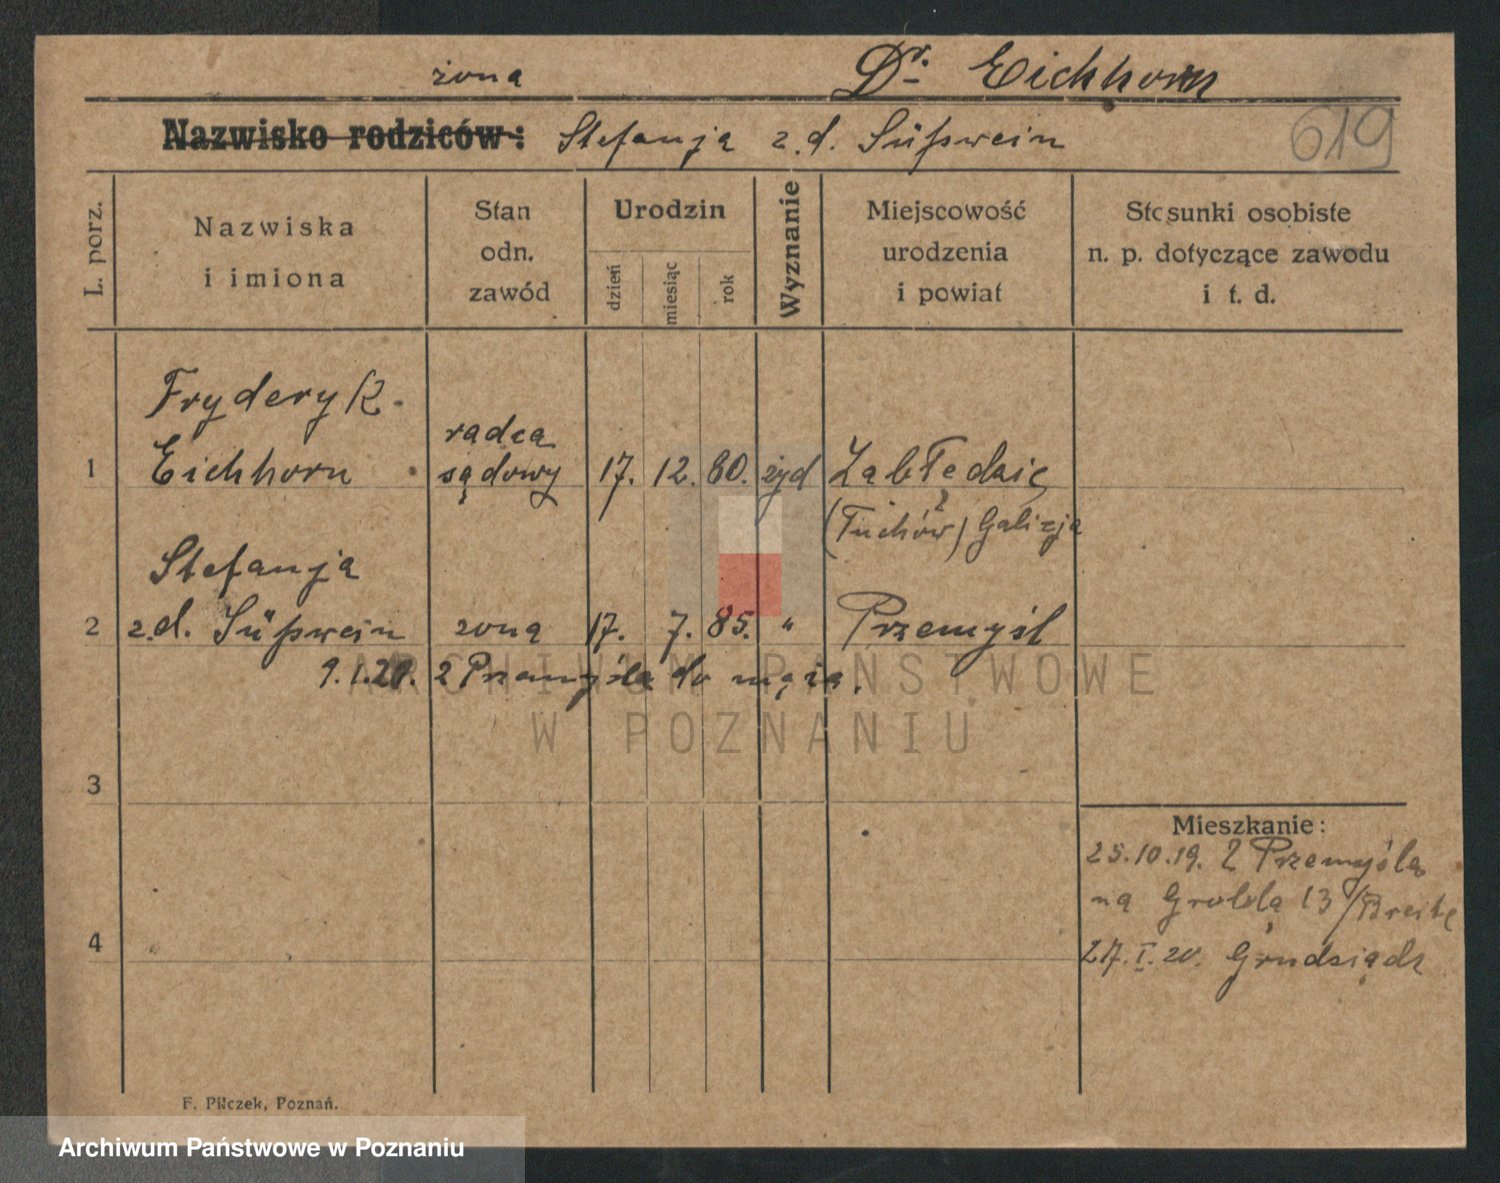 żona Dr. Eichhorn
Nazwisko rodziców: Stefanja z.d. Süßwein
619
L. porz.
Nazwiska
i imiona
Stan
odn.
zawód
Urodzin
dzień
miesiąc
rok
Wyznanie
Miejscowość
urodzenia
i powiat
Stosunki osobiste
n. p. dotyczące zawodu
i t. d.
Fryderyk
1 Eichhorn radca sądowy 17. 12. 80. żyd Zabłędzie
(Tuchów) Galicja
Stefanja
2 z.d. Süßwein żona 17. 7. 85. " Przemyśl
9.1.20. z Przemyśla do męża.
ARCHIWUM PAŃSTWOWE
W POZNANIU
3
Mieszkanie:
25.10.19. z Przemyśla
na Grobla 13 /Breite
4
27.I.20. Grudziądz
F. Pilczek, Poznań.
Archiwum Państwowe w Poznaniu